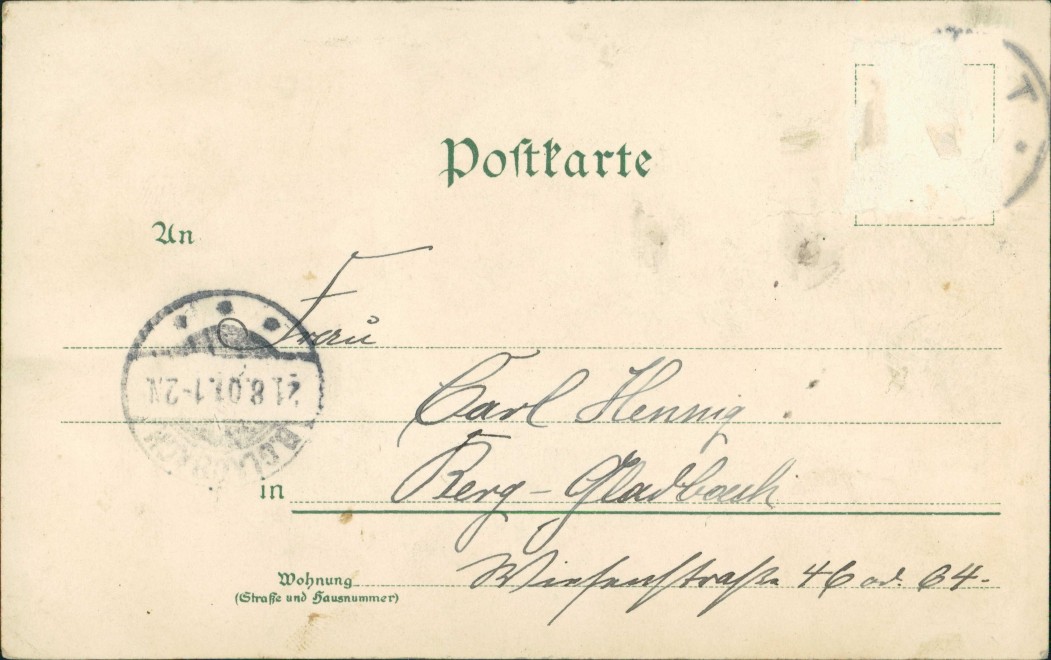 Postkarte
An
Frau
Carl Hennig
in Berg-Gladbach
Wohnung Wiesenstraße 46 od. 64.
(Straße und Hausnummer)
21.8.01.1-2N